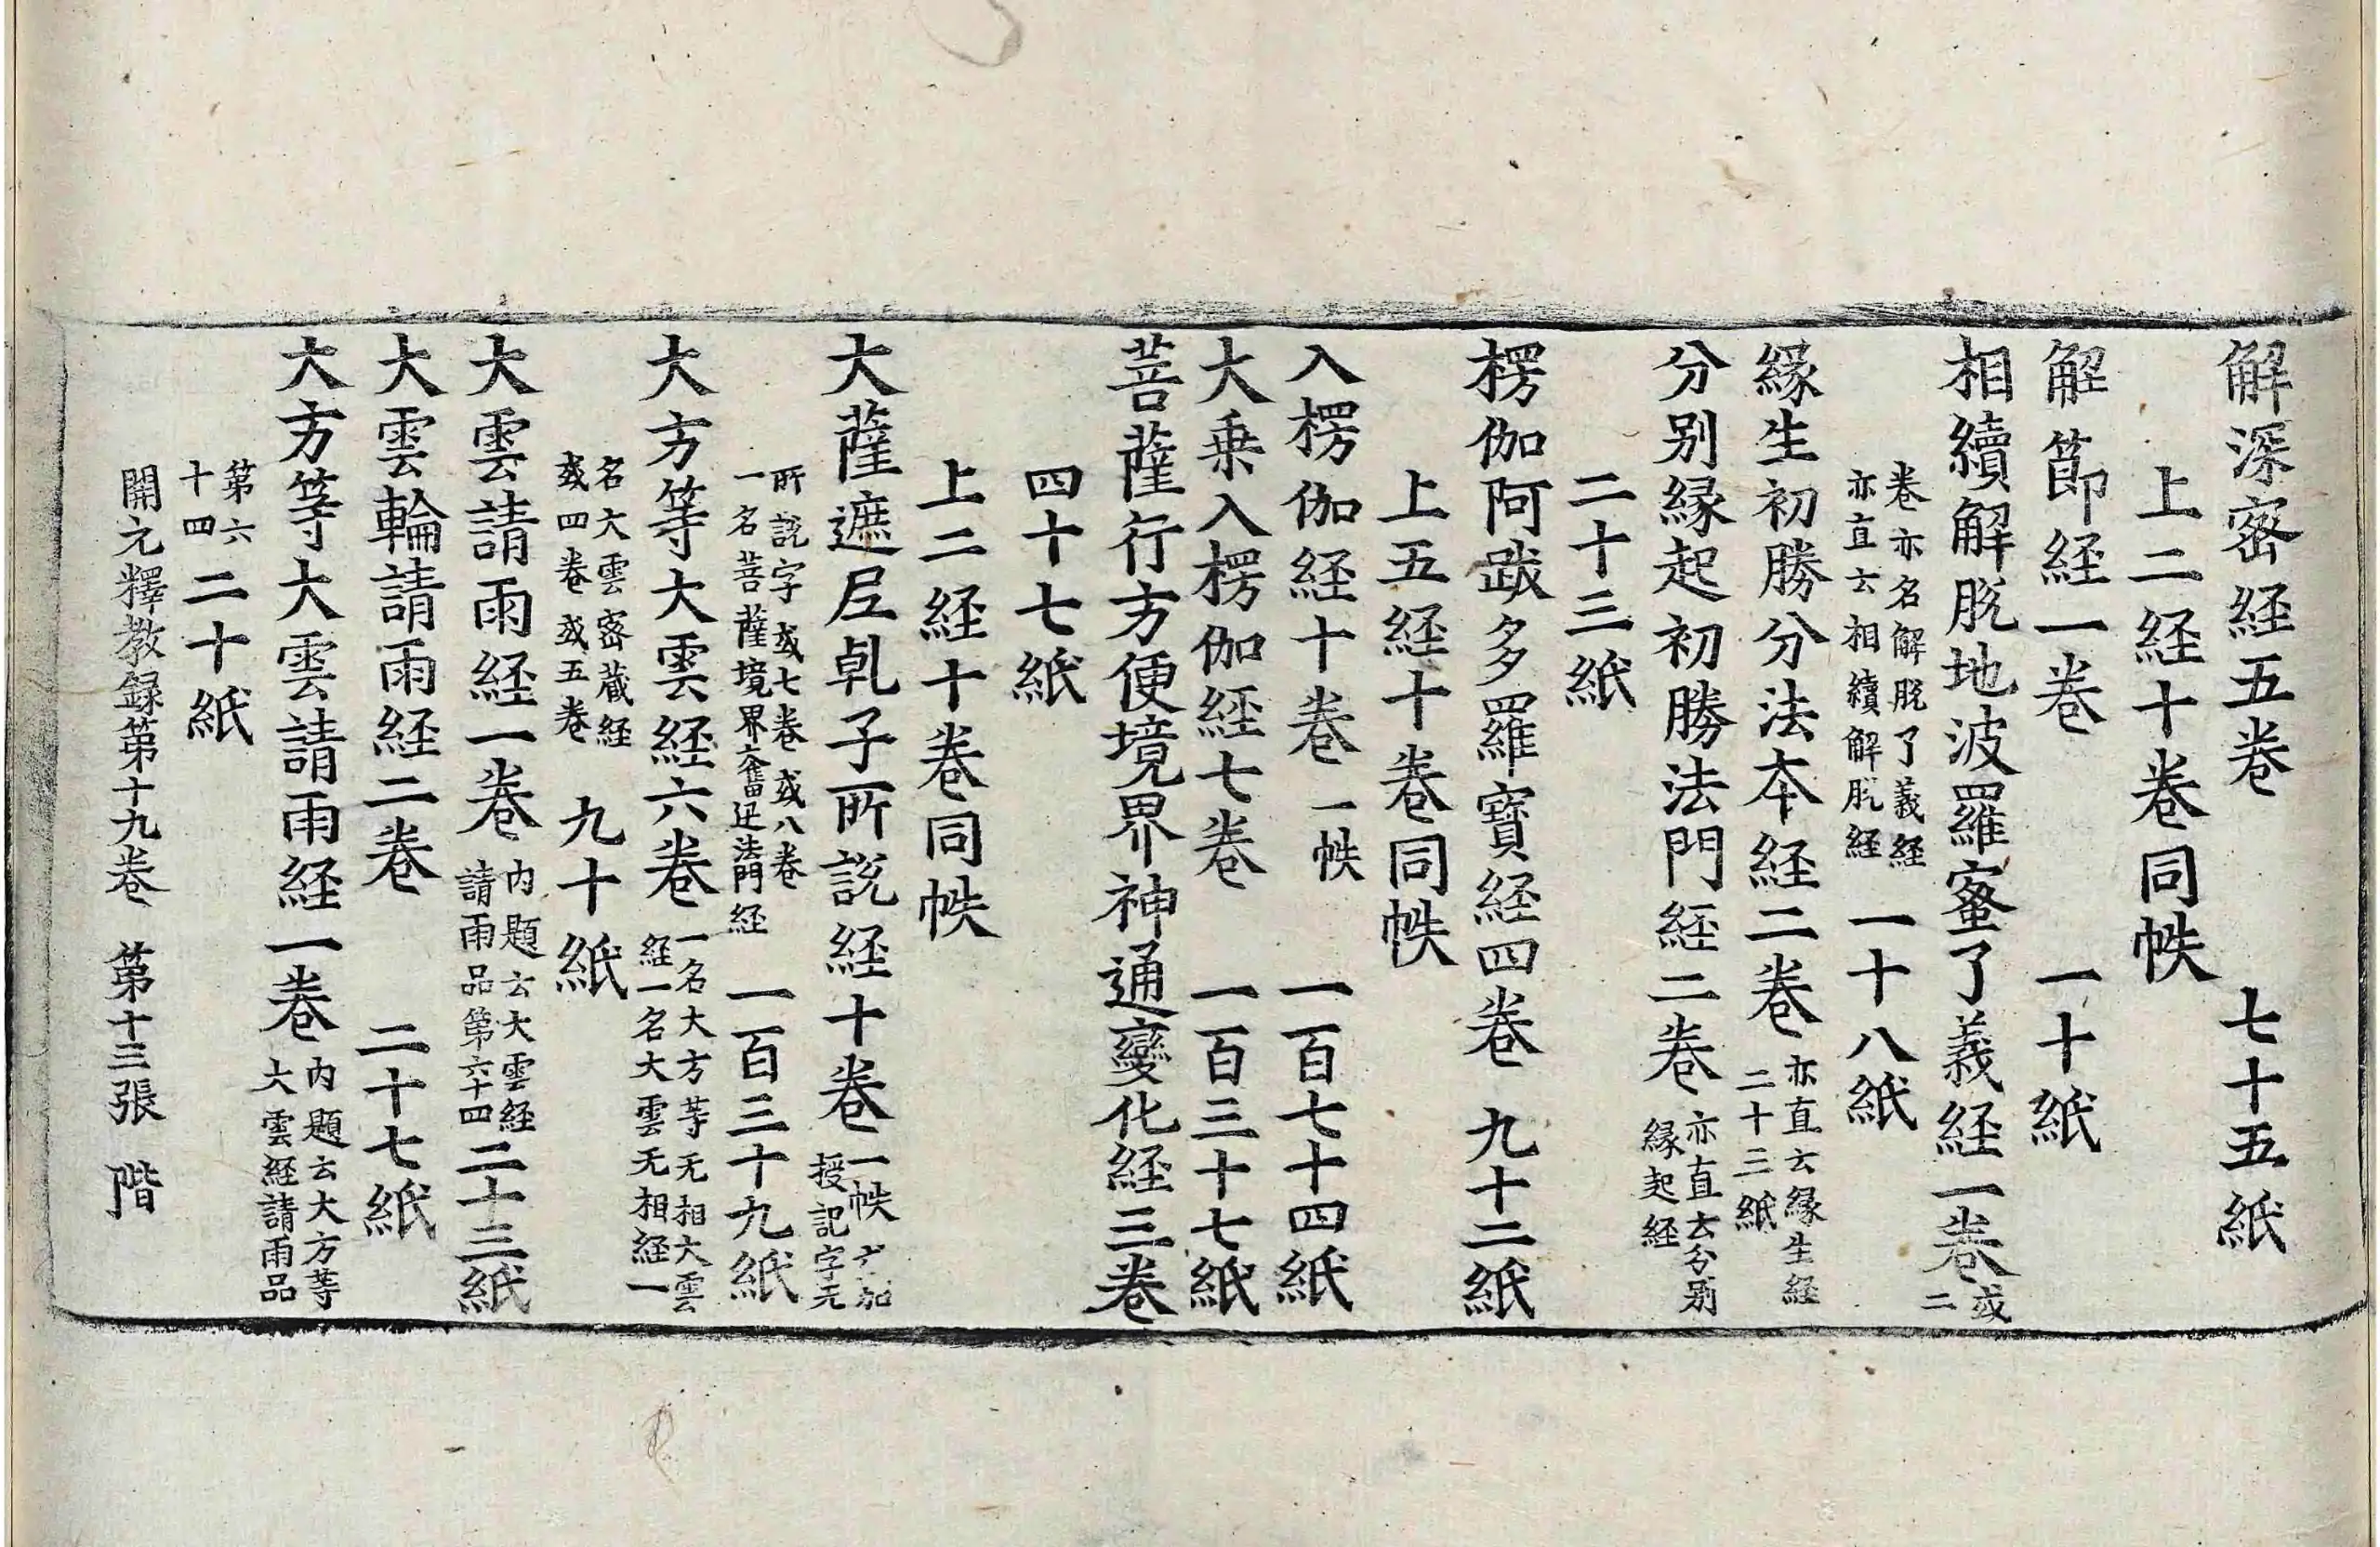 解深密経五卷　七十五紙
上二経十卷同帙
解節経一卷　一十紙
相續解脫地波羅蜜了義経一卷 或二
卷亦名解脫了義経亦直云相續解脫経　一十八紙
緣生初勝分法本経二卷 亦直云縁生経二十三紙
分别縁起初勝法門経二卷 亦直云分别縁起経
二十三紙
楞伽阿跋多羅寶経四卷　九十二紙
上五経十卷同帙
入楞伽経十卷 一帙　一百七十四紙
大乗入楞伽経七卷　一百三十七紙
菩薩行方便境界神通變化経三卷
四十七紙
上二経十卷同帙
大薩遮尼乹子所說経十卷 一帙 加授記字无
所說字或七卷或八卷一名菩薩境界奮迅法門経　一百三十九紙
大方等大雲経六卷 一名大方等无相大雲経一名大雲无相経一
名大雲密藏経或四卷或五卷　九十紙
大雲請雨経一卷 内題云大雲経請雨品第六十四 二十三紙
大雲輪請雨経二卷　二十七紙
大方等大雲請雨経一卷 内題云大方等大雲経請雨品
第六十四 二十紙
開元釋教録第十九卷　第十三張　階